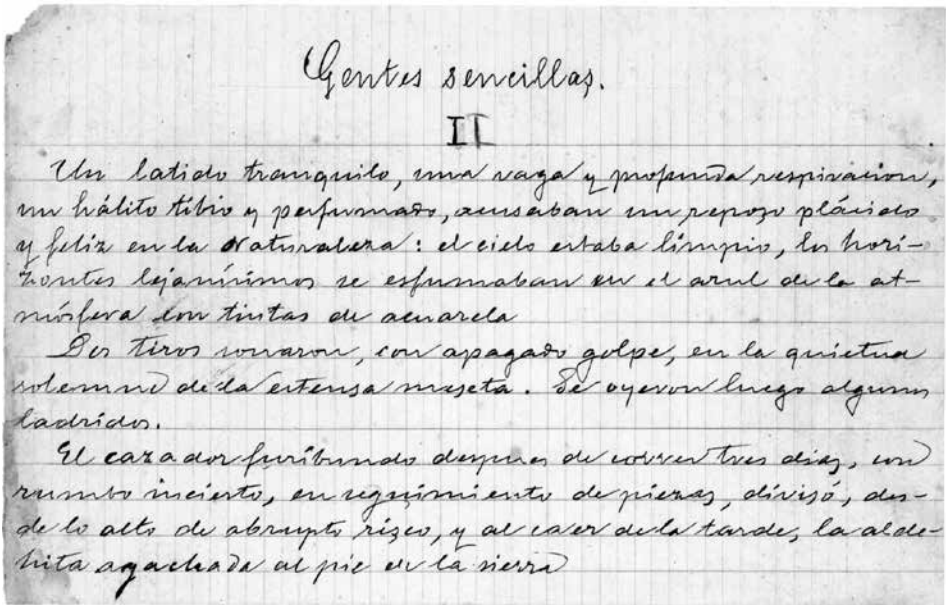 Gentes sencillas.
II
Un latido tranquilo, una vaga y profunda respiracion,
un hálito tibio y perfumado, acusaban un reposo plácido
y feliz en la Naturaleza: el cielo estaba límpio, los hori-
zontes lejanísimos se esfumaban en el azul de la at-
mósfera con tintas de acuarela
Dos tiros sonaron, con apagado golpe, en la quietud
solemne de la estensa meseta. Se oyeron luego algunos
ladridos.
El cazador furibundo despues de correr tres dias, con
rumbo incierto, en seguimiento de piezas, divisó, des-
de lo alto de abrupto risco, y al caer de la tarde, la alde-
hita agachada al pie de la sierra